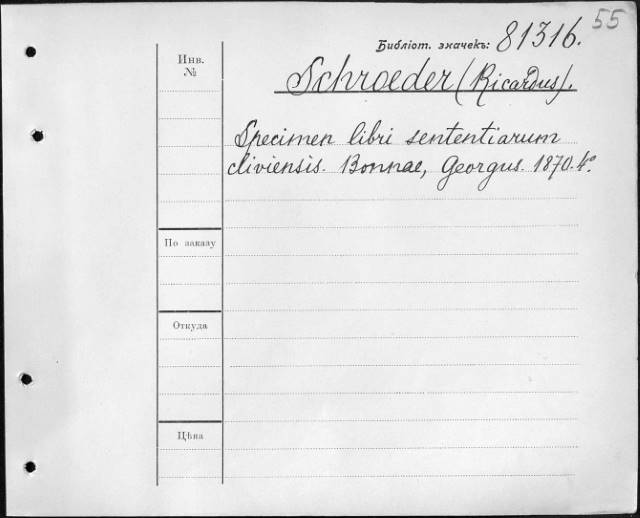 55
Библіот. значекъ: 81316.
Инв. №
Schroeder (Ricardus).
Specimen libri sententiarum
cliviensis. Bonnae, Georgus. 1870. 4°.
По заказу
Откуда
Цѣна